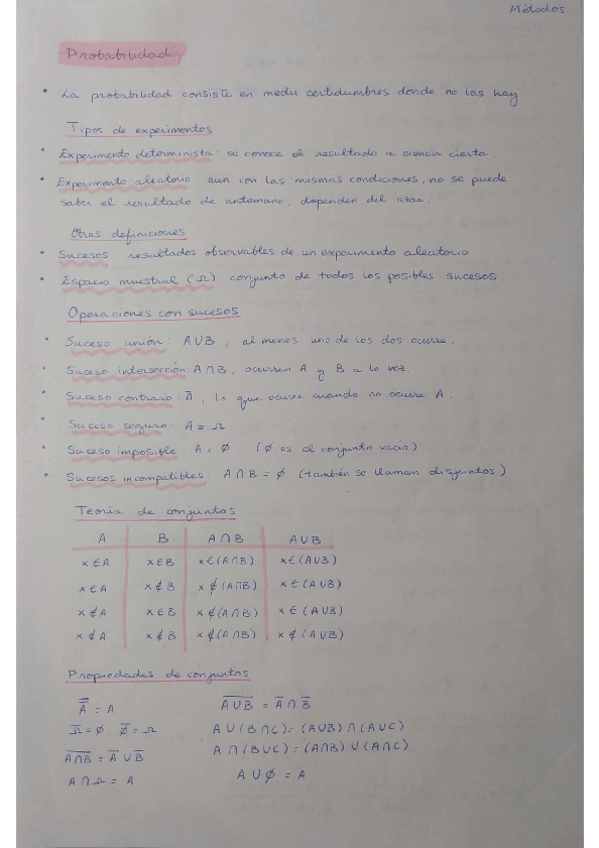 Métodos
Probabilidad
• La probabilidad consiste en medir certidumbres donde no las hay
Tipos de experimentos
• Experimento determinista: se conoce el resultado a ciencia cierta.
• Experimento aleatorio aun con las mismas condiciones, no se puede
saber el resultado de antemano, dependen del azar.
Otras definiciones
• Sucesos resultados observables de un experimento aleatorio
• Espacio muestral (Ω): conjunto de todos los posibles sucesos.
Operaciones con sucesos
• Suceso unión: A∪B, al menos uno de los dos ocurre.
• Suceso intersección: A∩B, ocurren A y B a la vez.
• Suceso contrario: A̅, lo que ocurre cuando no ocurre A.
• Suceso seguro: A = Ω
• Suceso imposible: A = ∅ (∅ es el conjunto vacío)
• Sucesos incompatibles: A∩B = ∅ (también se llaman disjuntos)
Teoría de conjuntos
A B A∩B A∪B
x∈A x∈B x∈(A∩B) x∈(A∪B)
x∈A x∉B x∉(A∩B) x∈(A∪B)
x∉A x∈B x∉(A∩B) x∈(A∪B)
x∉A x∉B x∉(A∩B) x∉(A∪B)
Propiedades de conjuntos
A̿ = A A̅∪̅B̅ = A̅∩B̅
Ω̅ = ∅. ∅̅ = Ω A∪(B∩C) = (A∪B)∩(A∪C)
A̅∩̅B̅ = A̅∪B̅ A∩(B∪C) = (A∩B)∪(A∩C)
A∩Ω = A A∪∅ = A